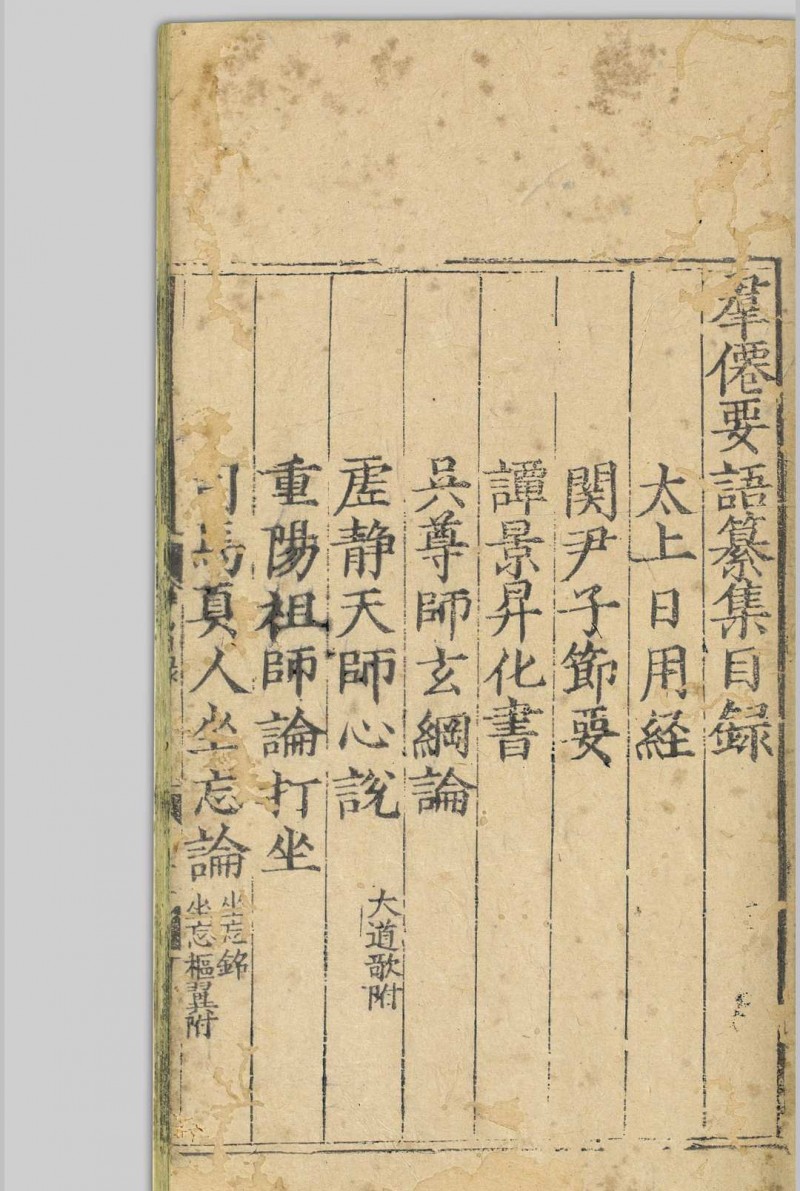 羣僊要語纂集目録
太上日用経
関尹子節要
譚景昇化書
吳尊師玄綱論
虛静天師心說 大道歌附
重陽祖師論打坐
司馬真人坐忘論 坐忘銘
坐忘樞翼附